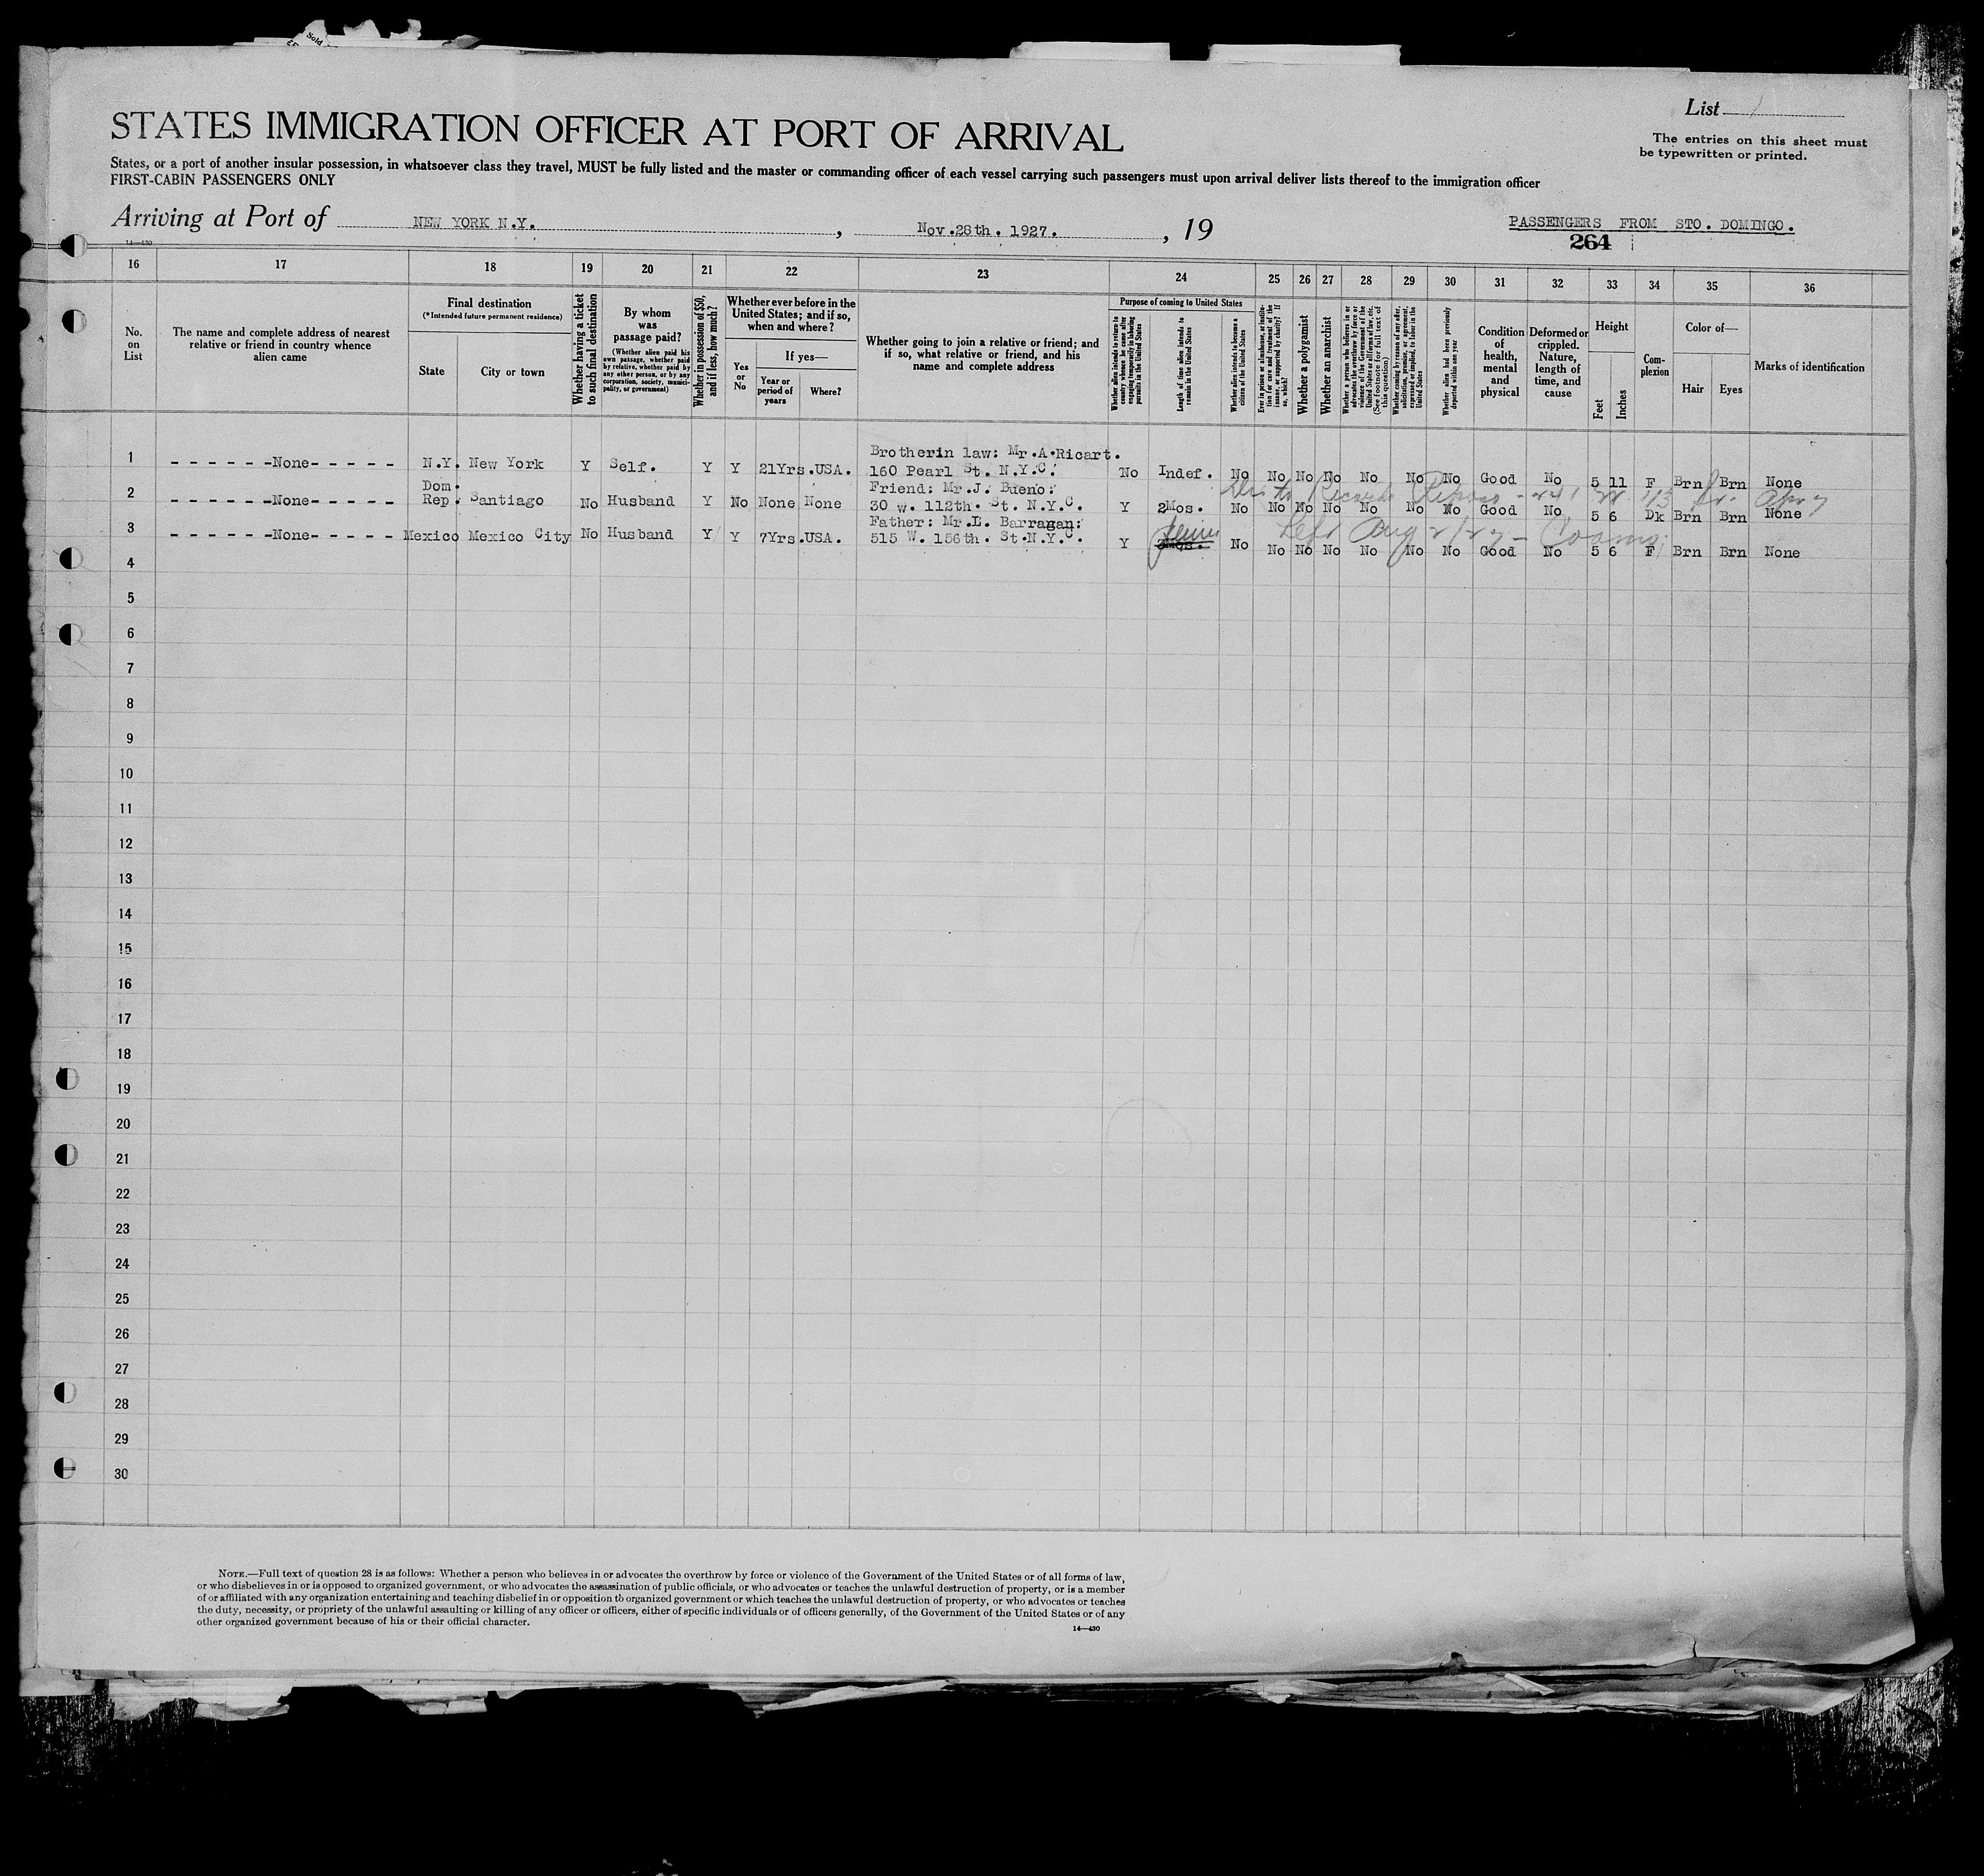 List 1
The entries on this sheet must
be typewritten or printed.
STATES IMMIGRATION OFFICER AT PORT OF ARRIVAL
States, or a port of another insular possession, in whatsoever class they travel, MUST be fully listed and the master or commanding officer of each vessel carrying such passengers must upon arrival deliver lists thereof to the immigration officer
FIRST-CABIN PASSENGERS ONLY
Arriving at Port of NEW YORK N.Y. , Nov.28th. 1927. , 19
PASSENGERS FROM STO. DOMINGO.
14—430
264
16 17 18 19 20 21 22 23 24 25 26 27 28 29 30 31 32 33 34 35 36
No. on List
The name and complete address of nearest relative or friend in country whence alien came
Final destination
(*Intended future permanent residence)
State
City or town
Whether having a ticket to such final destination
By whom was passage paid?
(Whether alien paid his own passage, whether paid by relative, whether paid by any other person, or by any corporation, society, municipality, or government)
Whether in possession of $50, and if less, how much?
Whether ever before in the United States; and if so, when and where?
Yes or No
If yes—
Year or period of years
Where?
Whether going to join a relative or friend; and if so, what relative or friend, and his name and complete address
Purpose of coming to United States
Whether alien intends to return to country whence he came after engaging temporarily in laboring pursuits in the United States
Length of time alien intends to remain in the United States
Whether alien intends to become a citizen of the United States
Ever in prison or almshouse, or institution for care and treatment of the insane, or supported by charity? If so, which?
Whether a polygamist
Whether an anarchist
Whether a person who believes in or advocates the overthrow by force or violence of the Government of the United States or all forms of law, etc. (See footnote for full text of this question)
Whether coming by reason of any offer, solicitation, promise, or agreement, expressed or implied, to labor in the United States
Whether alien had been previously deported within one year
Condition of health, mental and physical
Deformed or crippled. Nature, length of time, and cause
Height
Feet
Inches
Complexion
Color of—
Hair
Eyes
Marks of identification
Brotherin law: Mr.A.Ricart.
1 - - - - - -None- - - - - N.Y. New York Y Self. Y Y 21Yrs.USA. 160 Pearl St. N.Y.C. No Indef. No No No No No No No Good No 5 11 F Brn Brn None
Dom. Friend: Mr.J. Bueno:
2 - - - - - -None- - - - - Rep. Santiago No Husband Y No None None 30 w. 112th. St. N.Y.C. Y 2Mos. No No No No No No No Good No 5 6 Dk Brn Brn None
Father: Mr.L. Barragan:
3 - - - - - -None- - - - - Mexico Mexico City No Husband Y Y 7Yrs.USA. 515 W. 156th. St.N.Y.C. Y No No No No No No No Good No 5 6 F Brn Brn None
Left Aug 2/27 - Coamo
4
5
6
7
8
9
10
11
12
13
14
15
16
17
18
19
20
21
22
23
24
25
26
27
28
29
30
NOTE.—Full text of question 28 is as follows: Whether a person who believes in or advocates the overthrow by force or violence of the Government of the United States or of all forms of law,
or who disbelieves in or is opposed to organized government, or who advocates the assassination of public officials, or who advocates or teaches the unlawful destruction of property, or is a member
of or affiliated with any organization entertaining and teaching disbelief in or opposition to organized government or which teaches the unlawful destruction of property, or who advocates or teaches
the duty, necessity, or propriety of the unlawful assaulting or killing of any officer or officers, either of specific individuals or of officers generally, of the Government of the United States or of any
other organized government because of his or their official character.
14—430